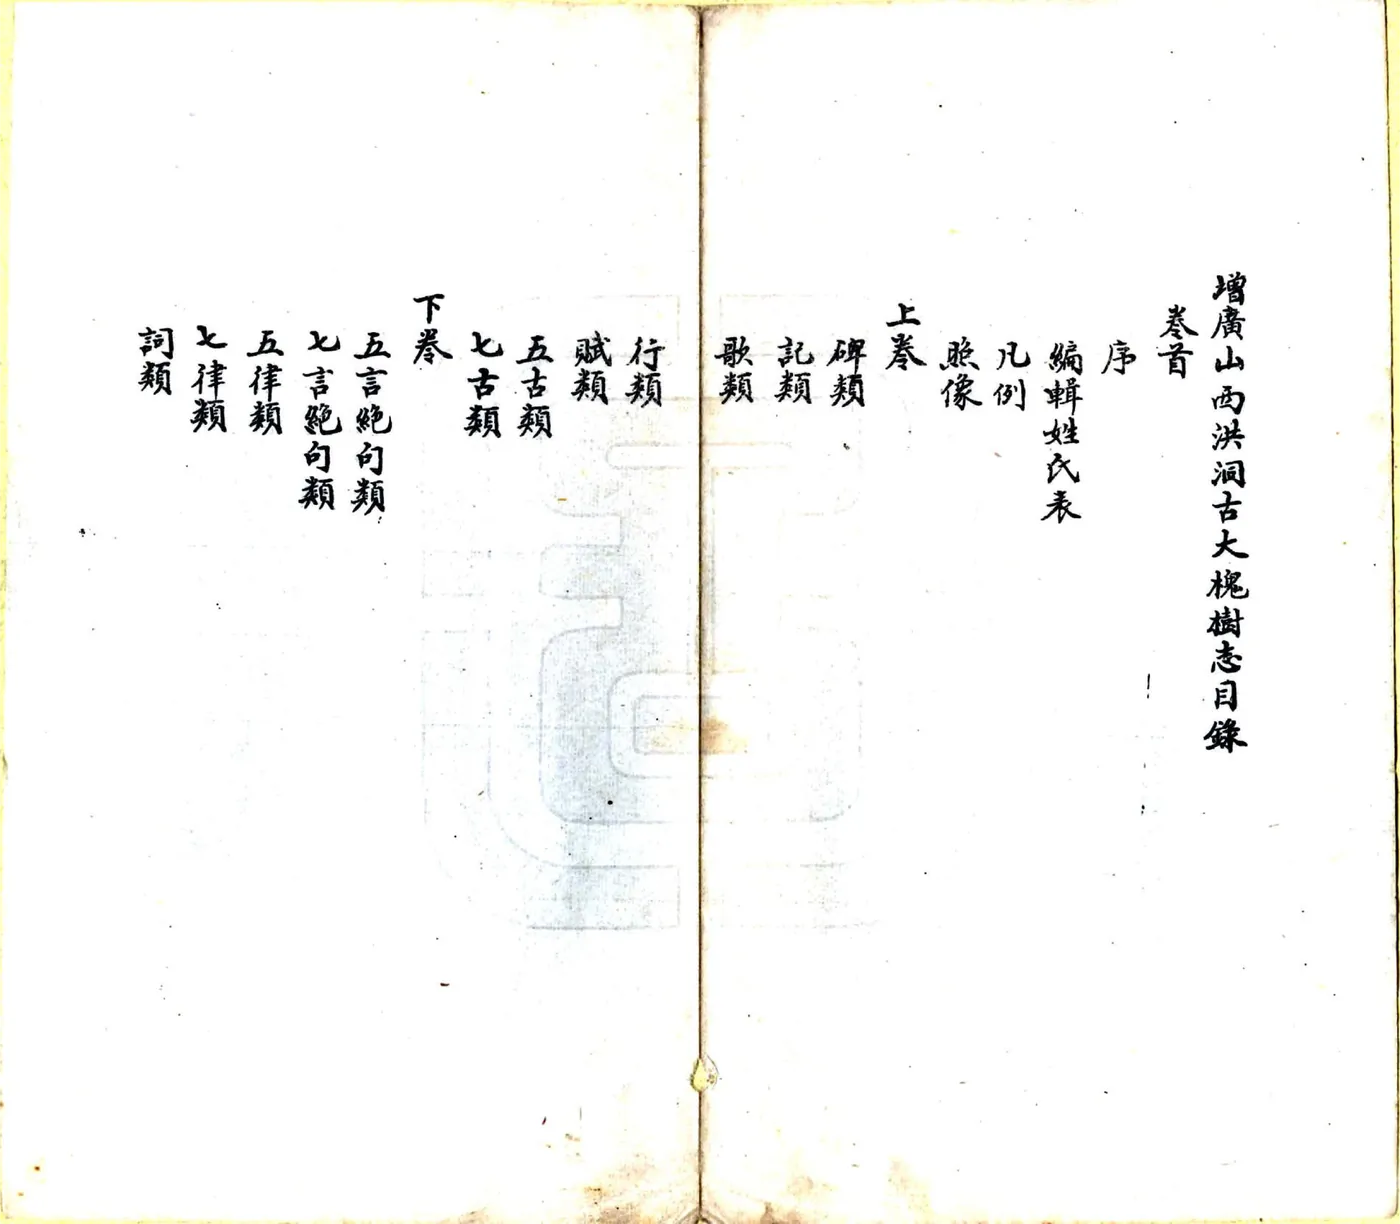 增廣山西洪洞古大槐樹志目錄
卷首
序
編輯姓氏表
凡例
照像
上卷
碑類
記類
歌類
行類
賦類
五古類
七古類
下卷
五言絕句類
七言絕句類
五律類
七律類
詞類